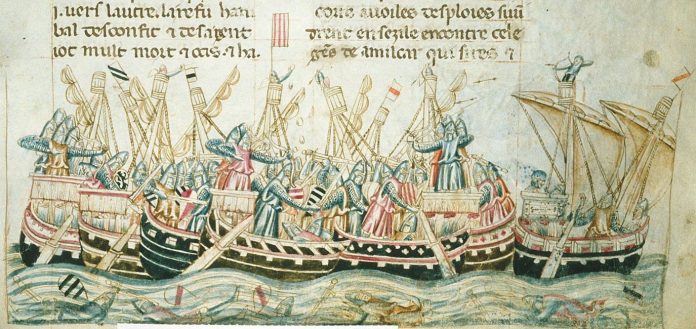 j. uers lautre. la refu han
bal desconfit ⁊ de sa gent
iot mult mort ⁊ ocis. ⁊ ha
cous a uoiles desploies suiu
irent en sezile encontre cele
gẽs de amilcar qui sires ⁊